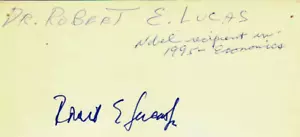 DR. ROBERT E. LUCAS
Nobel recipient in
1995 - Economics
Robert E Lucas Jr